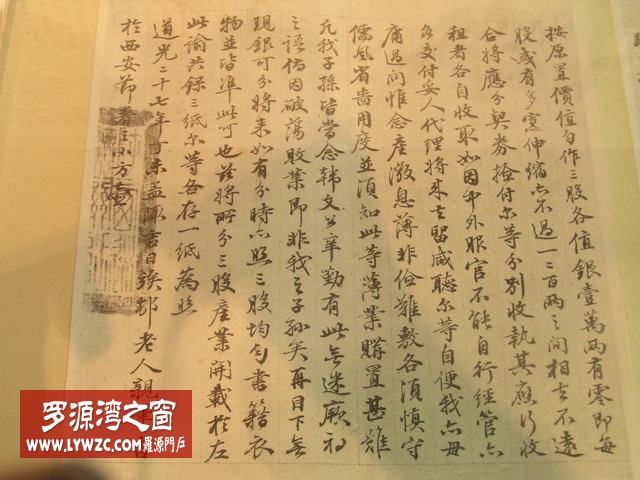 按原置價值勻作三股各值銀壹萬兩有零即每
股或有多寡伸縮亦不過一二百兩之間相去不遠
合將應分契券撿付尔等分別收執其應行收
租者各自收取如因中外服官不能自行經管亦
各交付妥人代理將來去留咸聽尔等自便我亦毋
庸過問惟念產微息薄非儉難敷各須慎守
儒風省嗇用度並須知此等薄業購置甚難
凡我子孫皆當念韓文公辛勤有此無迷厥初
之語倘因破蕩敗業即非我之子孫矣再目下無
現銀可分將來如有分時亦照三股均勻書籍衣
物並皆準此可也茲將所分三股產業開載於左
此諭共錄三紙尔等各存一紙為照
道光二十七年丁未孟陬吉日竢邨老人親
於西安節署之小方壺
罗源湾之窗
WWW.LYWZC.COM 羅源門戶